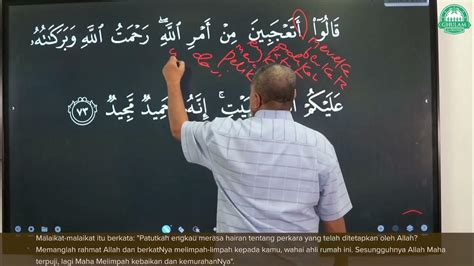 GHULAM
قَالُوٓا۟ أَتَعْجَبِينَ مِنْ أَمْرِ ٱللَّهِ ۖ رَحْمَتُ ٱللَّهِ وَبَرَكَٰتُهُۥ
عَلَيْكُمْ ۚ إِنَّهُۥ حَمِيدٌ مَّجِيدٌ ٧٣
Malaikat-malaikat itu berkata: "Patutkah engkau merasa hairan tentang perkara yang telah ditetapkan oleh Allah?
Memanglah rahmat Allah dan berkatNya melimpah-limpah kepada kamu, wahai ahli rumah ini. Sesungguhnya Allah Maha
terpuji, lagi Maha Melimpah kebaikan dan kemurahanNya".